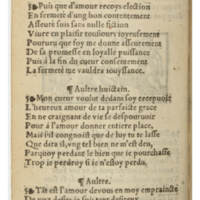 Puis que d'amour recoys election
En fermeté d'ung bon contentement
Asseuré suis sans nulle fiction
Viure en plaisir tousiours ioyeusement
Pourueu que soy me donne asseurement
De sa promesse en loyalle puissance
Puis à la fin du cueur consentement
La fermeté me vauldra iouyssance.
¶ Aultre huictain.
Mon cueur voulut dedans soy recepuoir
L'honneur de ta parfaicte grace
En ne craignant de se despourueoir
Pour à l'amour donner entiere place,
Mais
Que dira ung tel bien ne m'est
Parquoy perdant le bien que ie pourchasse
Trop ie perdroy si ie n'estoy perdu,
¶ Aultre.
Tāt est l'amour de vous en moy empraincte